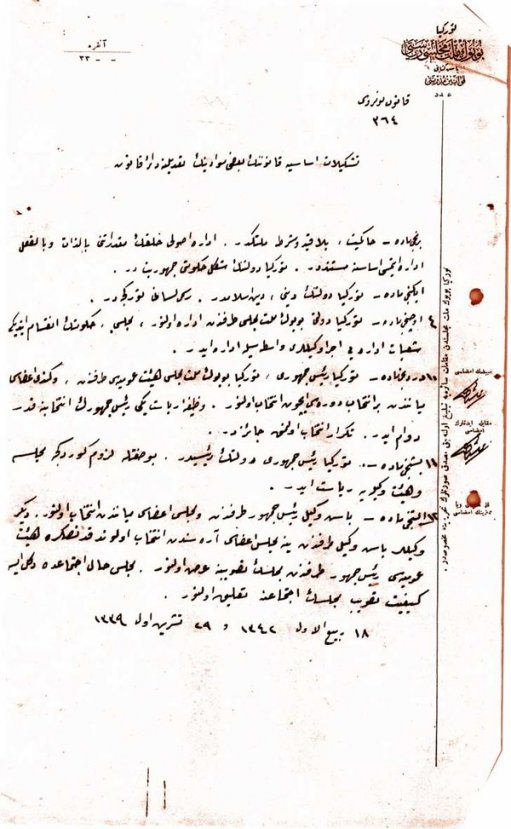 توركيا
بويوك ملت مجلسى رياستى
باش كتابتى
قوانين مديريتى
عدد
آنقره
- - ٣٣
قانون نومروسى
٣٦٤
تشكيلات اساسيه قانوننك بعض موادينك تعديلنه دائر قانون
برنجى ماده — حاكميت، بلا قيد و شرط ملتكدر. اداره اصولى خلقك مقدراتنى بالذات و بالفعل
اداره ايتمسى اساسنه مستنددر. توركيا دولتنك شكل حكومتى جمهوريت در.
ايكنجى ماده — توركيا دولتنك دينى، دين اسلامدر. رسمى لسانى توركجه در.
٤ اوچنجى ماده — توركيا دولتى بويوك ملت مجلسى طرفندن اداره اولنور، مجلس، حكومتك انقسام ايتديكى
شعبات اداره يى اجرا وكيللرى واسطه سيله اداره ايدر.
١٠ دردنجى ماده — توركيا رئيس جمهورى، توركيا بويوك ملت مجلسى هيئت عموميه سى طرفندن، وكندى اعضاسى
مياننندن بر انتخاب دوره سى ايچون انتخاب اولنور. وظيفۀ رياست يكى رئيس جمهورك انتخابنه قدر
دوام ايدر. تكرار انتخاب اولنمق جائزدر.
١١ بشنجى ماده — توركيا رئيس جمهورى دولتك رئيسيدر. بو صفتله لزوم كوردكجه مجلسه
و هيئت وكيليه يه رياست ايدر.
١٢ آلتنجى ماده — باش وكيل رئيس جمهور طرفندن و مجلس اعضاسى مياننندن انتخاب اولنور. ديكر
وكيللر باش وكيل طرفندن ينه مجلس اعضاسى آره سندن انتخاب اولوندقدنصكره هيئت
عموميه سى رئيس جمهور طرفندن مجلسك تصويبنه عرض اولنور. مجلس حال اجتماعده دكل ايسه
كيفيت تصويب مجلسك اجتماعنه تعليق اولنور.
١٨ ربيع الاول ١٣٤٢ و ٢٩ تشرين اول ١٣٣٩
مبيضك امضاسى
مقابله ايدنلرك
امضاسى